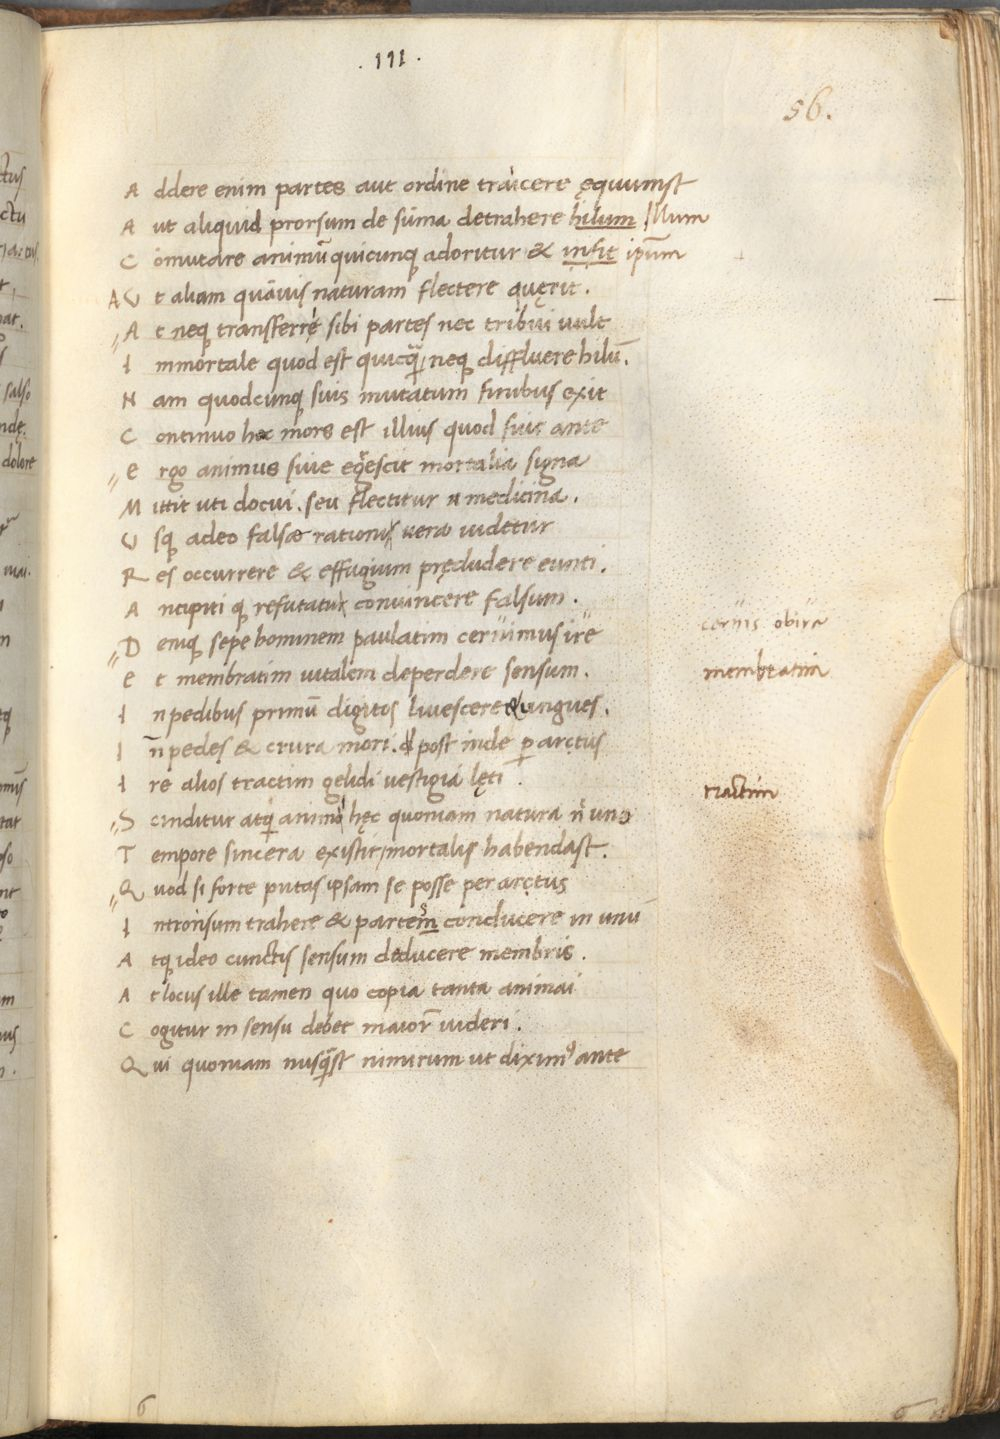 .III.
56.
Addere enim partes aut ordine traicere ęquumst
Aut aliquid prorsum de sūma detrahere hilum Illum
Cōmutare animū quicunq adoritur & infit ipsum
AUt aliam quāuis naturam flectere quęrit.
"At neq transferre sibi partes nec tribui uult
Immortale quod est quicq̄ neq diffluere hilū.
Nam quodcunq suis mutatum finibus exit
Continuo hoc mors est illius quod fuit ante
"Ergo animus siue egrescit mortalia signa
Mittit uti docui. seu flectitur a medicina.
Usq adeo falsae rationi uera uidetur
Res occurrere & effugium pręcludere eunti.
Ancipiti q refutatu conuincere falsum.
"Deniq sepe hominem paulatim cernimus ire
cernis obire
Et membratim uitalem deperdere sensum.
membratim
In pedibus primū digitos liuescere & ungues.
In̄ pedes & crura mori. post inde per arctus
Ire alios tractim gelidi uestigia lęti.
tractim
"Scinditur atqui animo hęc quoniam natura n uno
Tempore sincera existit, mortalis habendast.
"Quod si forte putas ipsam se posse per arctus
Introrsum trahere & partem conducere in unū
Atq ideo cunctis sensum deducere membris.
At locus ille tamen quo copia tanta animai
Cogitur in sensu debet maior uideri.
Qui quoniam nusq̄st nimirum ut diximꝰ ante
6